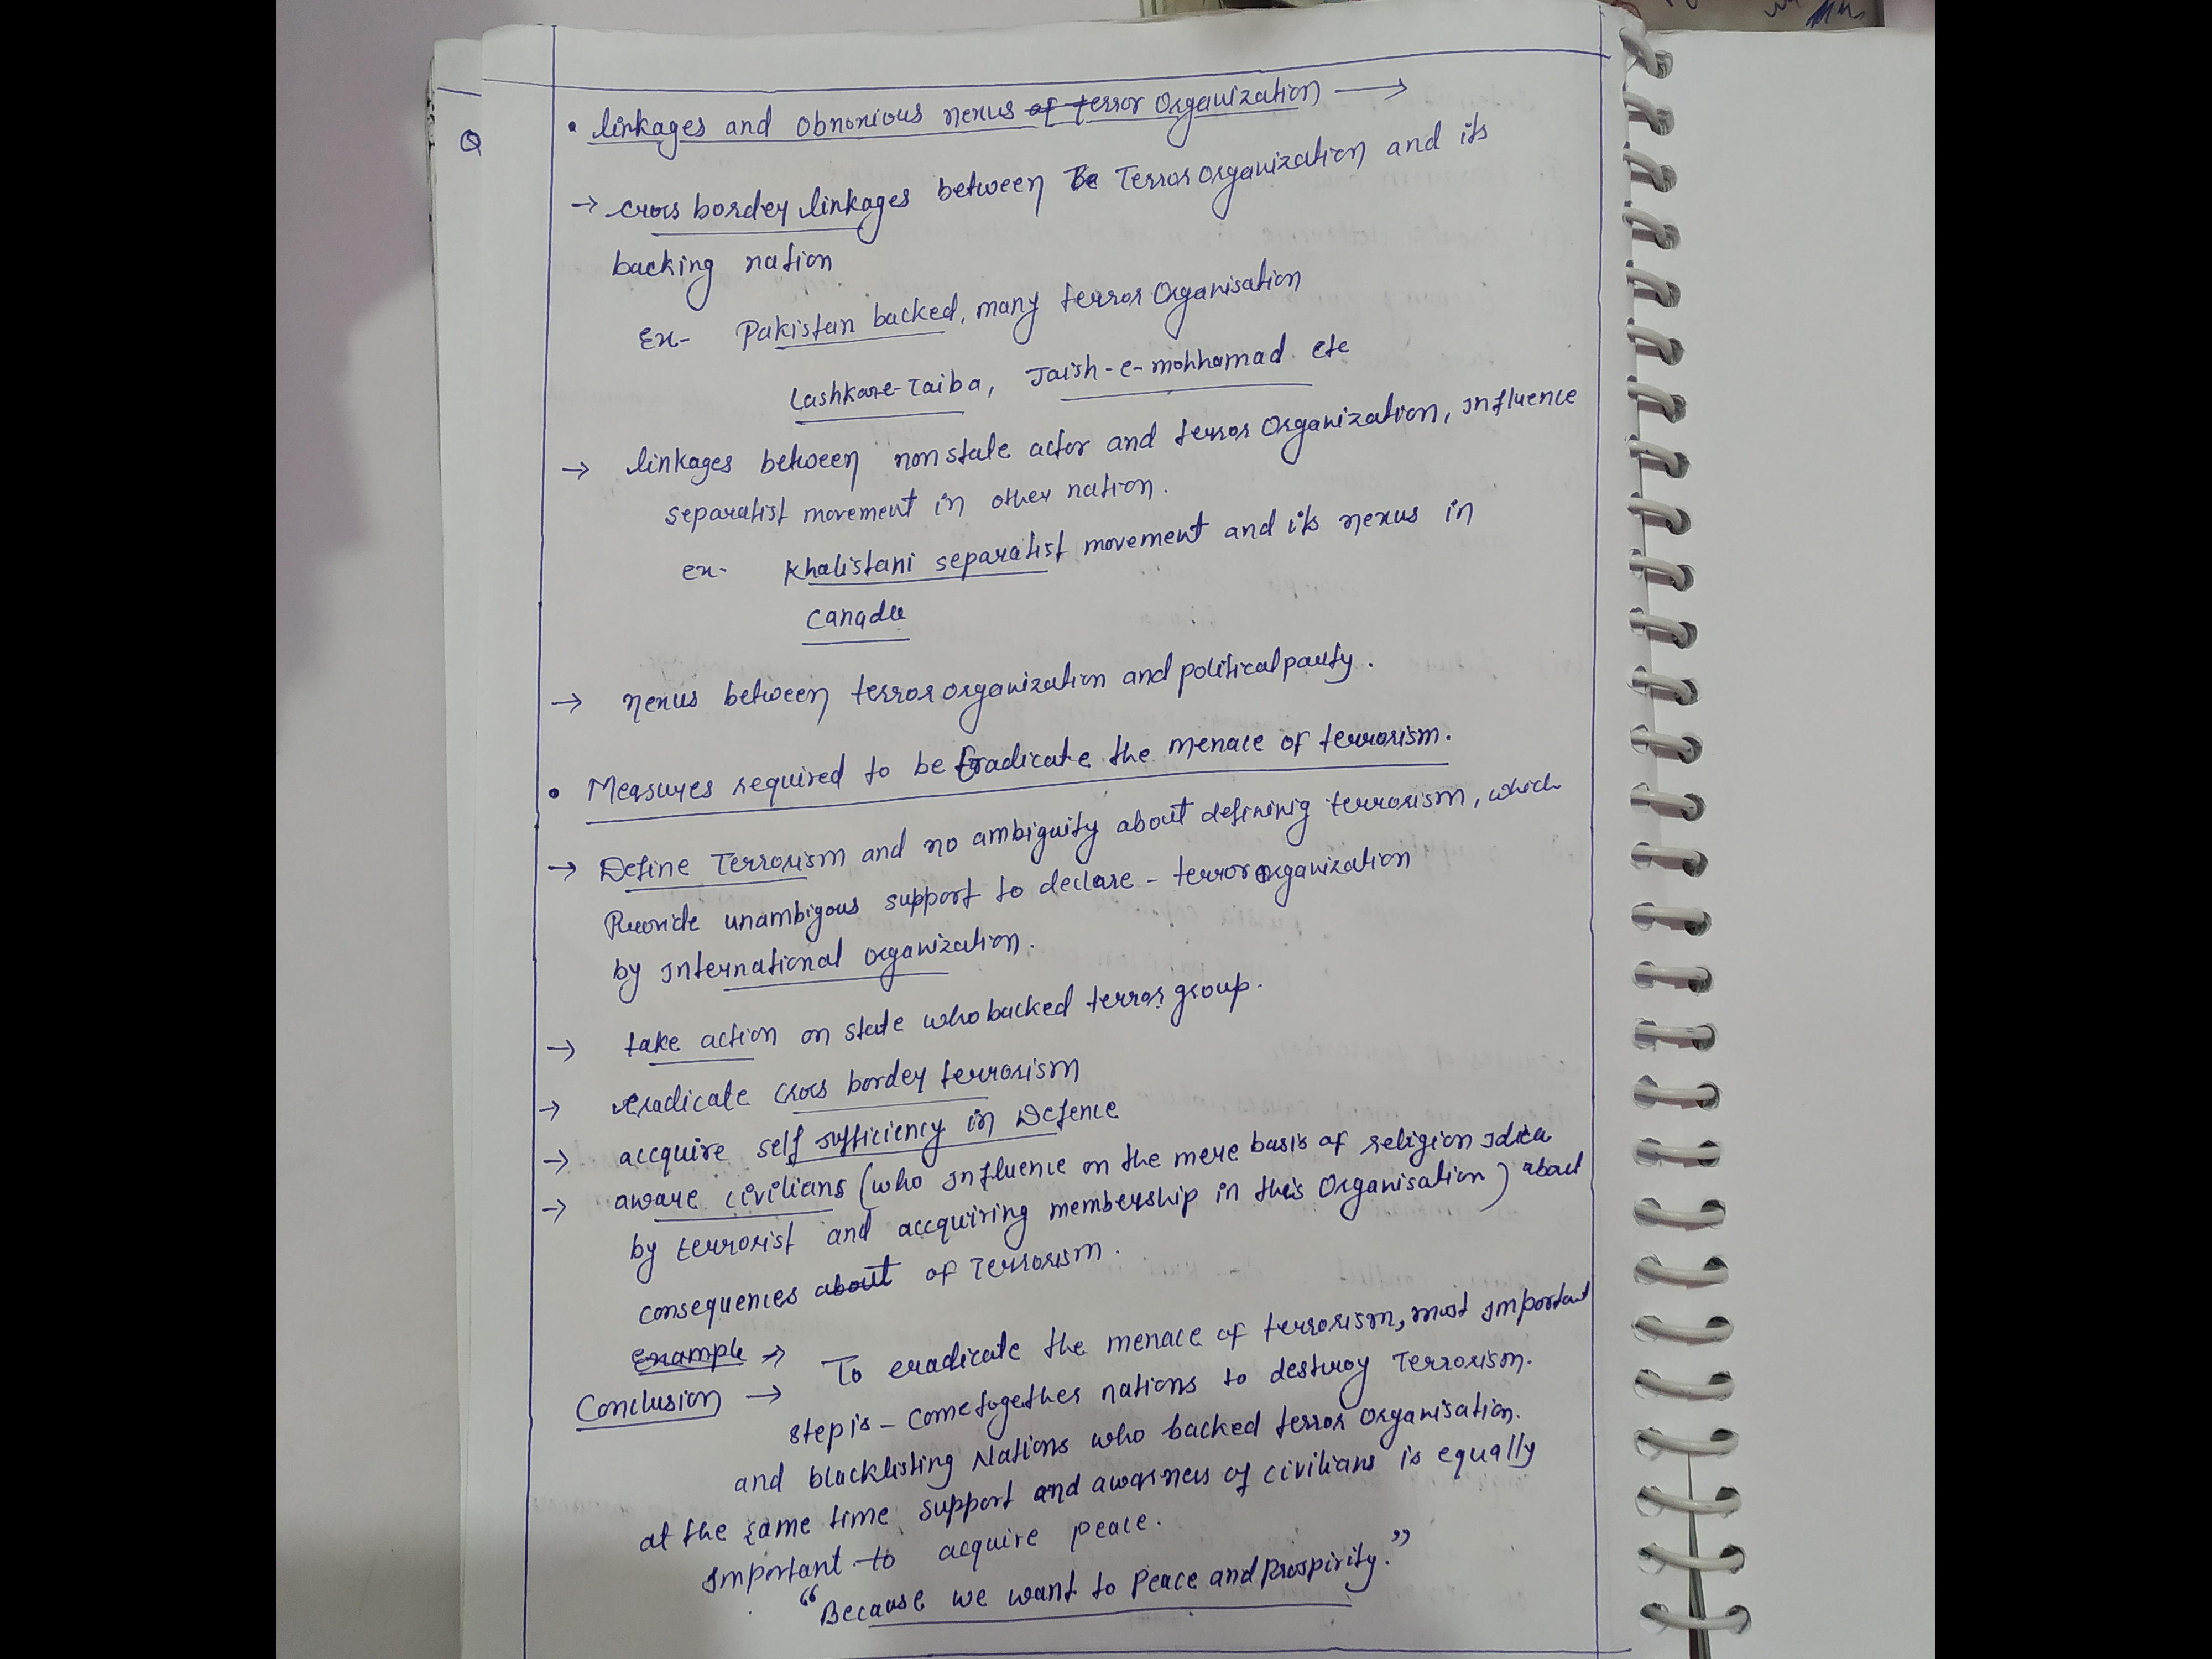 Q
• linkages and obnonious nexus of terror Organization →
→ cross border linkages between Te Terror Organization and its
backing nation
Ex- Pakistan backed, many terror Organisation
Lashkare-Taiba, Jaish-e-mohhamad. etc
→ linkages between non state actor and terror Organization, Influence
separatist movement in other nation.
ex- Khalistani separatist movement and its nexus in
Canada
→ nexus between terror organization and political party.
• Measures required to be Eradicate the menace of terrorism.
→ Define Terrorism and no ambiguity about defining terrorism, which
Provide unambigous support to declare - terror organization
by International organization.
→ take action on state who backed terror group.
→ eradicate cross border terrorism
→ accquire self sufficiency in Defence
→ aware civilians (who Influence on the mere basis of religion Idea
by terrorist and accquiring membership in this Organisation) about
consequences about of Terrorism.
Example → To eradicate the menace of terrorism, most Important
Conclusion →
step is - come together nations to destroy Terrorism.
and blacklisting Nations who backed terror Organisation.
at the same time support and awarness of civilians is equally
Important to acquire peace.
"Because we want to Peace and Prospirity."